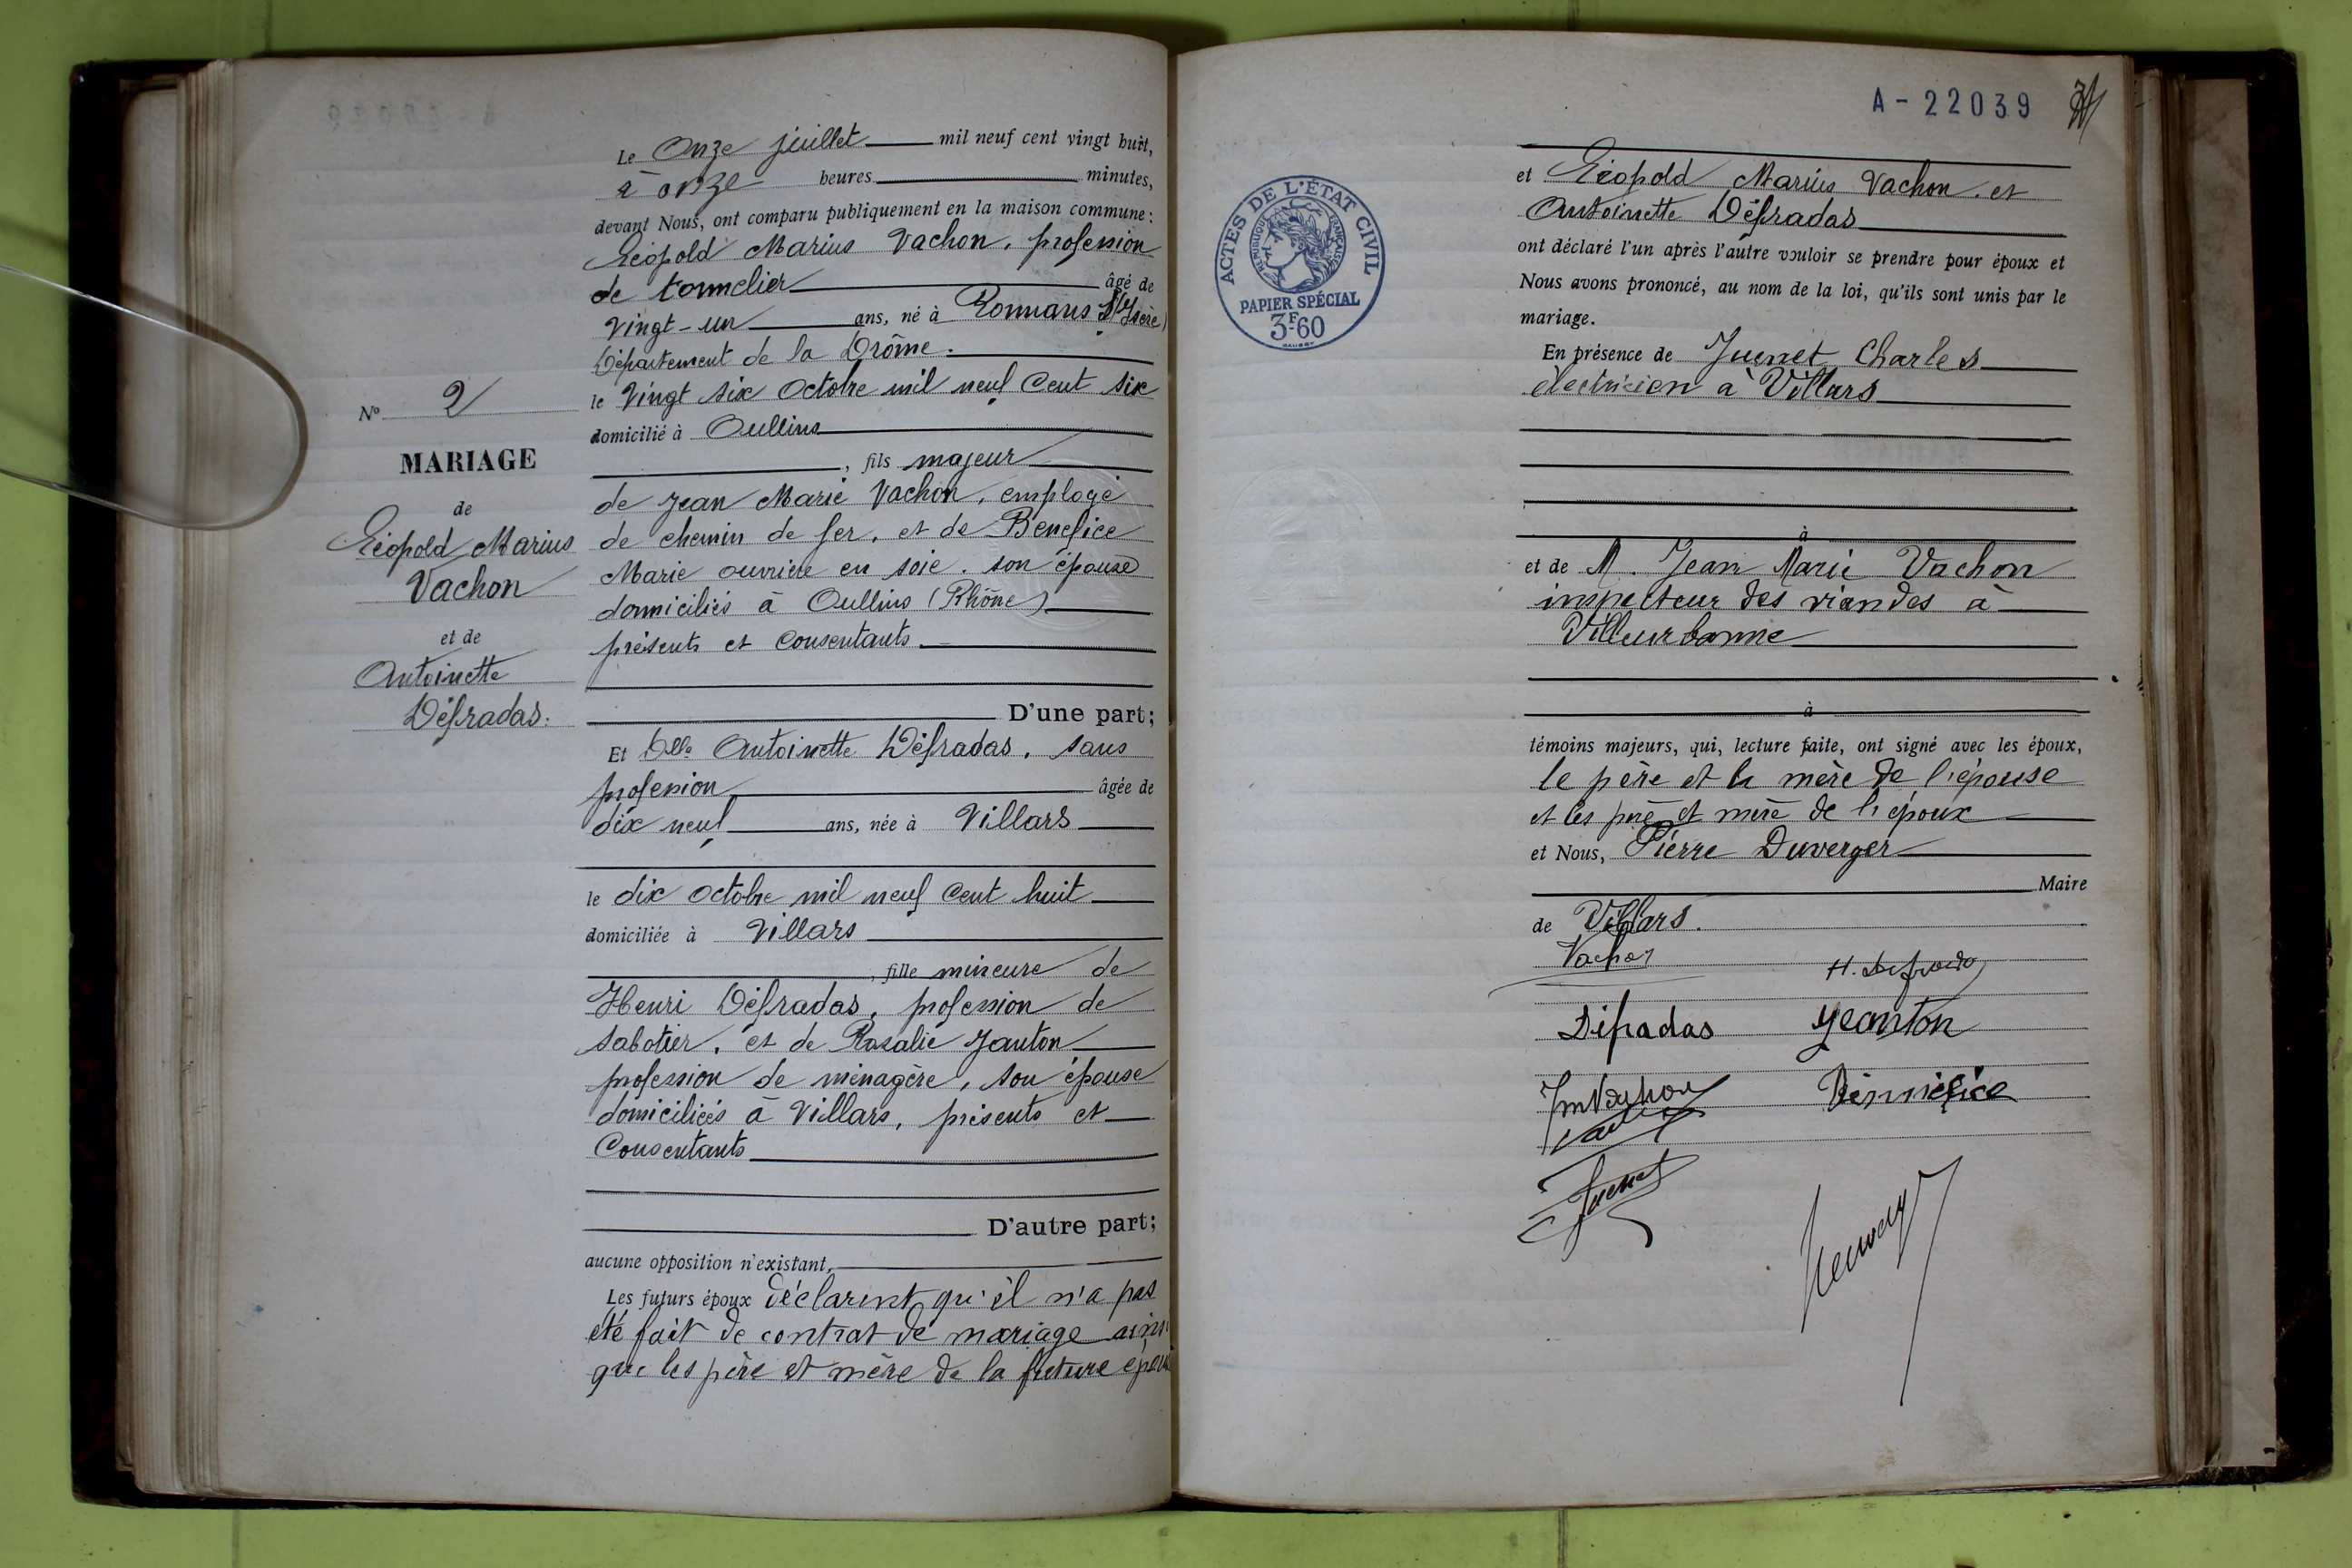 Le Onze juillet mil neuf cent vingt huit,
à onze heures minutes,
devant Nous, ont comparu publiquement en la maison commune :
Léopold Marius Vachon, profession
de tonnelier âgé de
vingt-un ans, né à Romans S/Isère
Département de la Drôme.
le vingt six Octobre mil neuf Cent six
domicilié à Oullins
, fils majeur
de Jean Marie Vachon, employé
de chemin de fer, et de Benefice
Marie ouvrière en soie, son épouse
domiciliés à Oullins (Rhône)
présents et Consentants
D'une part;
Et Dlle Antoinette Défradas, sans
profession âgée de
dix neuf ans, née à Villars
le dix octobre mil neuf Cent huit
domiciliée à Villars
, fille mineure de
Henri Défradas, profession de
sabotier, et de Rosalie Janton
profession de ménagère, son épouse
domiciliés à Villars, présents et
Consentants
D'autre part;
aucune opposition n'existant,
Les futurs époux déclarent qu'il n'a pas
été fait de contrat de mariage ainsi
que les père et mère de la future épouse
N° 2
MARIAGE
de
Léopold Marius
Vachon
et de
Antoinette
Défradas.
A-22039
ACTES DE L'ÉTAT CIVIL
RÉPUBLIQUE FRANÇAISE
PAPIER SPÉCIAL
3F60
et Léopold Marius Vachon et
Antoinette Défradas
ont déclaré l'un après l'autre vouloir se prendre pour époux et
Nous avons prononcé, au nom de la loi, qu'ils sont unis par le
mariage.
En présence de Juenet Charles
électricien à Villars
à
et de M. Jean Marie Vachon
inspecteur des viandes à
Villeurbanne
à
témoins majeurs, qui, lecture faite, ont signé avec les époux,
le père et la mère de l'épouse
et les père et mère de l'époux
et Nous, Pierre Duverger
Maire
de Villars.
Vachon
H. Defradas
Défradas Jeanton
JmVachon Bénnéfice
Vachon
Juenet
Duverger